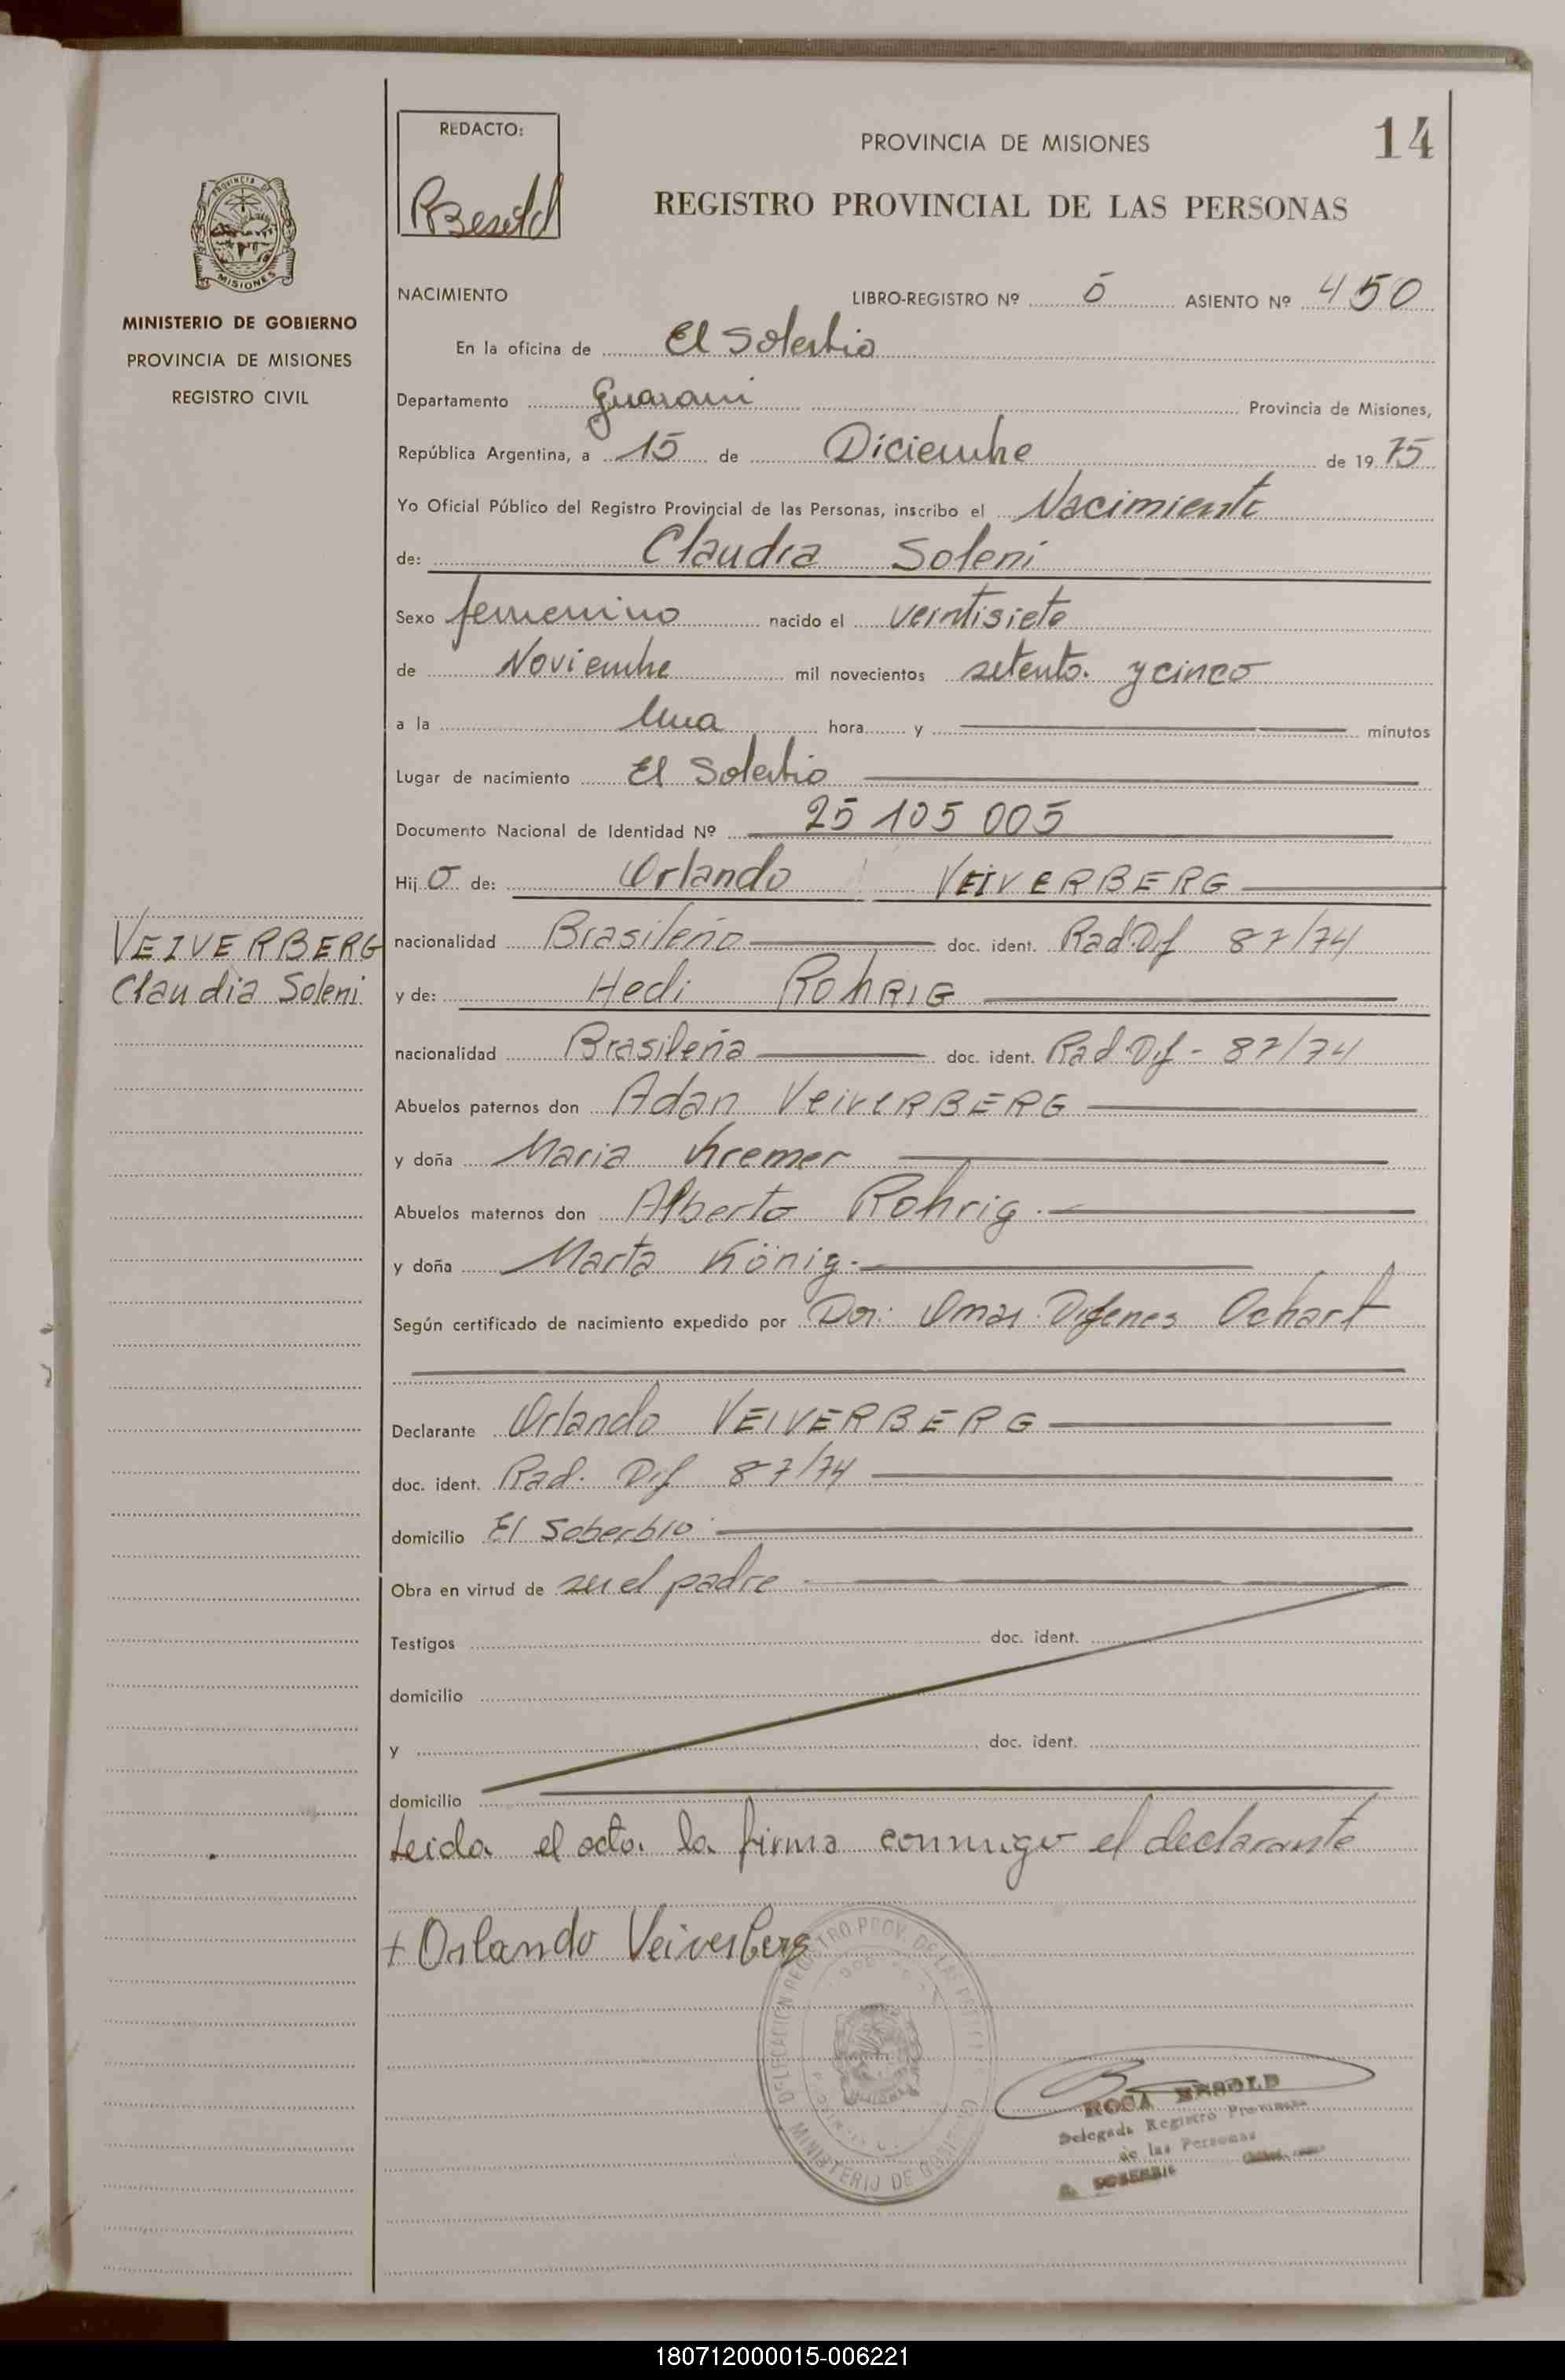 REDACTO:
RBesold
PROVINCIA DE MISIONES
14
REGISTRO PROVINCIAL DE LAS PERSONAS
PROVINCIA DE MISIONES
MINISTERIO DE GOBIERNO
PROVINCIA DE MISIONES
REGISTRO CIVIL
NACIMIENTO
LIBRO-REGISTRO Nº 5 ASIENTO Nº 450
En la oficina de El Soberbio
Departamento Guarani Provincia de Misiones,
República Argentina, a 15 de Diciembre de 1975
Yo Oficial Público del Registro Provincial de las Personas, inscribo el Nacimiento
de: Claudia Soleni
Sexo femenino nacido el veintisiete
de Noviembre mil novecientos setenta y cinco
a la Una hora y minutos
Lugar de nacimiento El Soberbio
Documento Nacional de Identidad Nº 25 105 005
Hij o de: Orlando VEIVERBERG
VEIVERBERG
Claudia Soleni
nacionalidad Brasileño doc. ident. Rad.Dif 87/74
y de: Hedi RohRIG
nacionalidad Brasileña doc. ident. Rad.Dif - 87/74
Abuelos paternos don Adan VeiverBERG
y doña Maria Kremer
Abuelos maternos don Alberto Rohrig.
y doña Marta König.
Según certificado de nacimiento expedido por Dor: Omar Ochart
Declarante Orlando VEIVERBERG
doc. ident. Rad. Dif 87/74
domicilio El Soberbio
Obra en virtud de ser el padre
Testigos doc. ident.
domicilio
y doc. ident.
domicilio
Leida el acta la firma conmigo el declarante
+ Orlando Veiverberg
DELEGACION REGISTRO PROV. DE LAS
MINISTERIO DE GOBIERNO
ROSA BESOLD
Delegada Registro Provincial
de las Personas
SOBERBIO
180712000015-006221